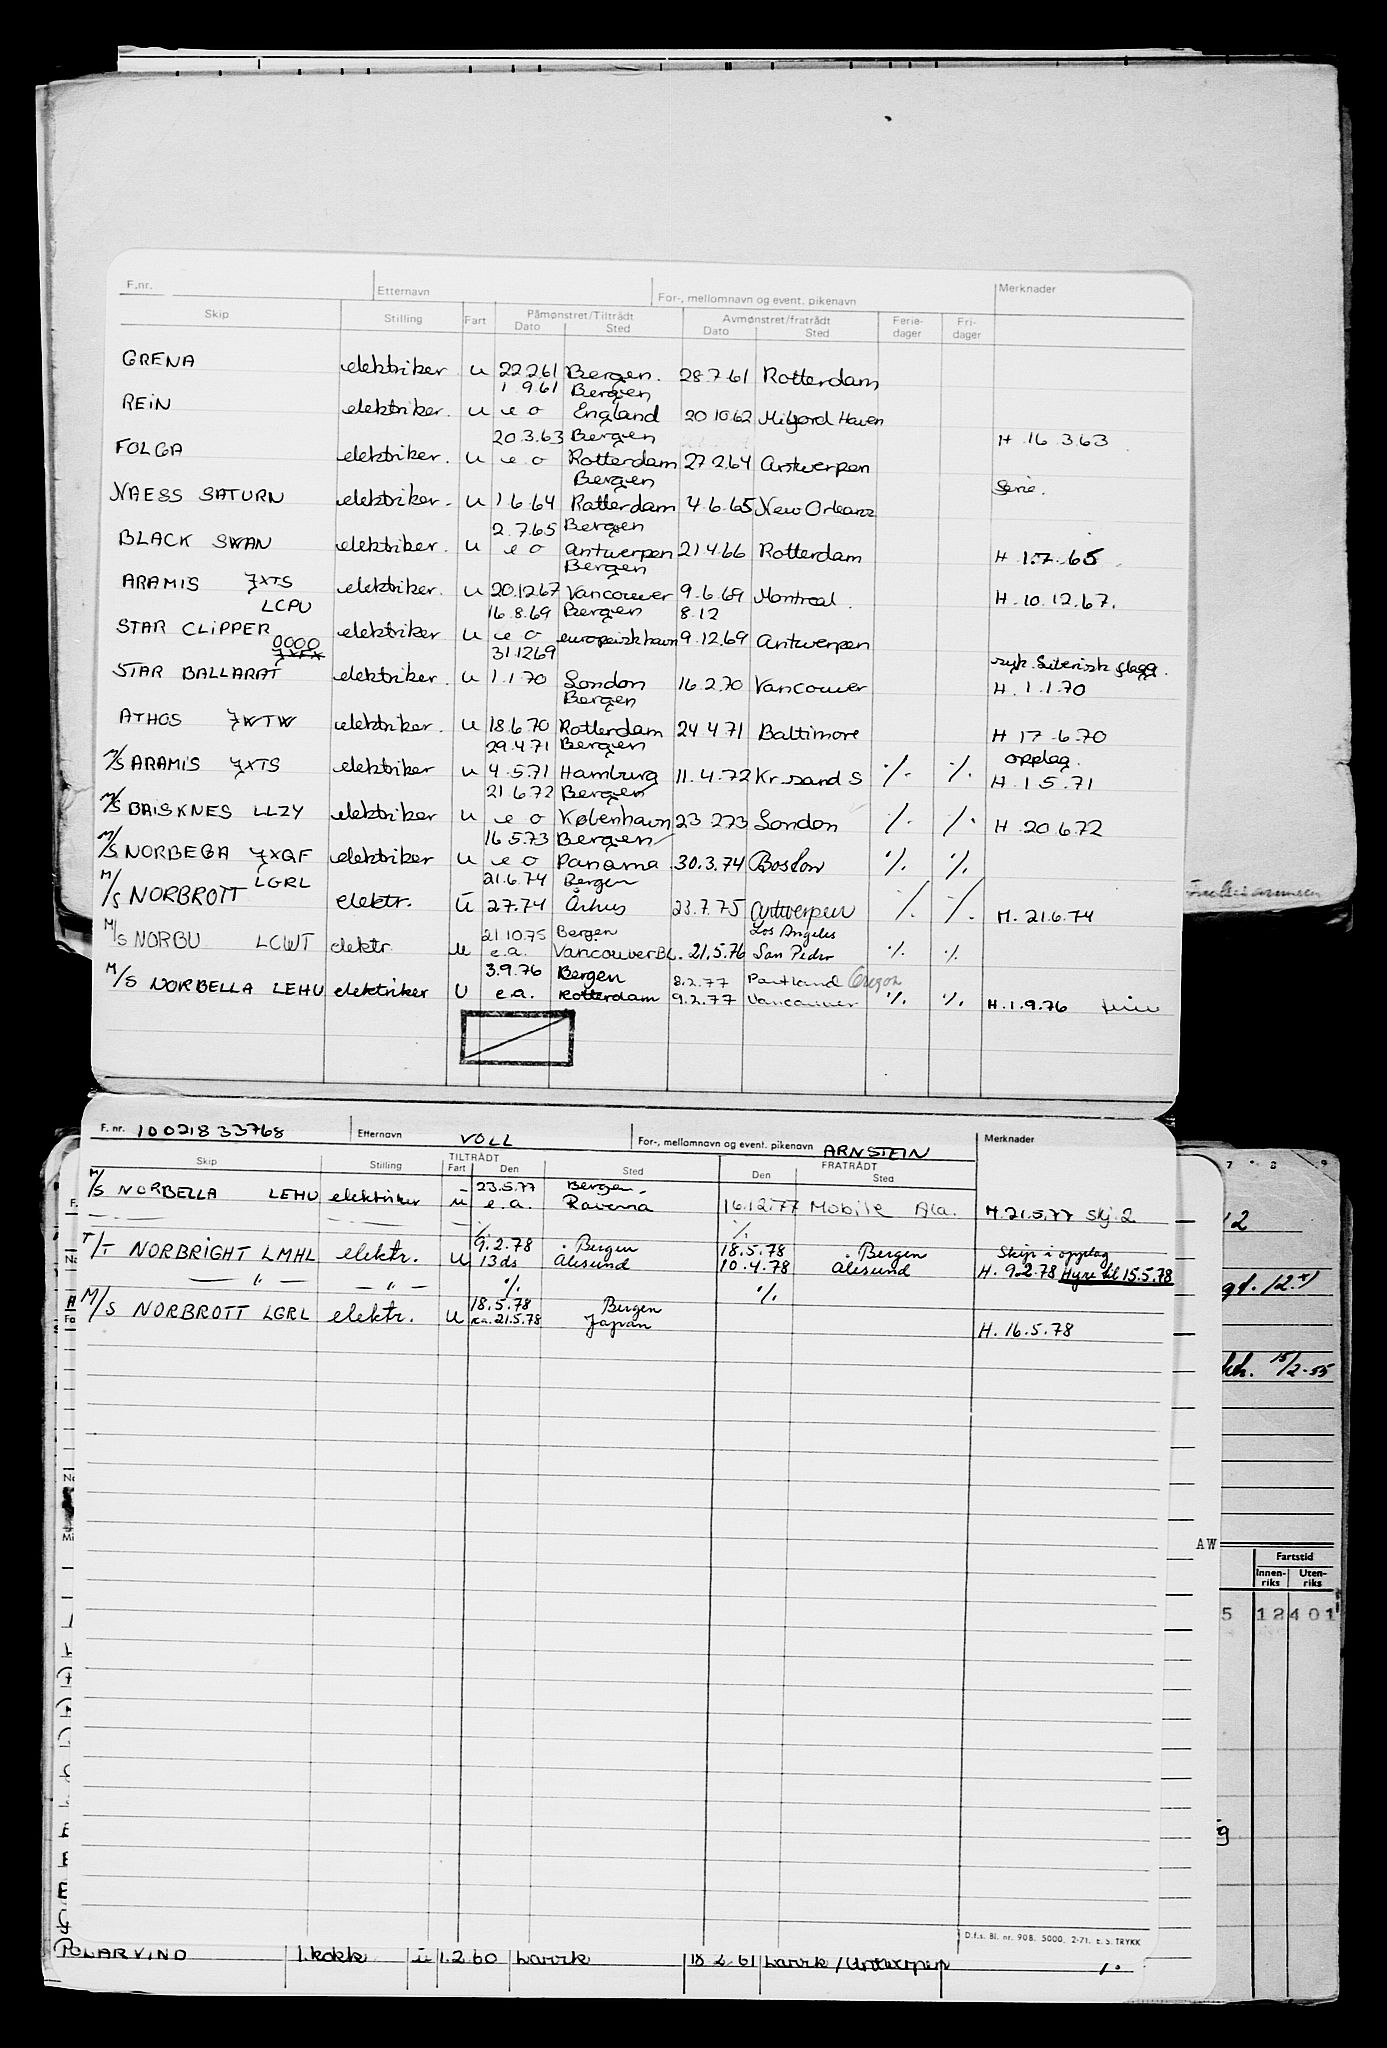 F.nr. Etternavn For-, mellomnavn og event. pikenavn Merknader
Skip Stilling Fart Påmønstret/Tiltrådt Avmønstret/fratrådt Ferie-dager Fri-dager
Dato Sted Dato Sted
GRENA elektriker u 22.2.61 Bergen. 28.7.61 Rotterdam
1.9.61 Bergen
REIN elektriker. u e o England 20.10.62 Milford Haven
20.3.63 Bergen H. 16.3.63
FOLGA elektriker. u e o Rotterdam 27.2.64 Antwerpen
Bergen Serie.
NAESS SATURN elektriker. u 1.6.64 Rotterdam 4.6.65 New Orleans
2.7.65 Bergen
BLACK SWAN elektriker. u e o Antwerpen 21.4.66 Rotterdam H 1.7.65
Bergen
ARAMIS JXTS elektriker. u 20.12.67 Vancouver 9.6.69 Montreal. H. 10.12.67.
LCPU 16.8.69 Bergen 8.12
STAR CLIPPER elektriker u e o europeisk havn 9.12.69 Antwerpen
OOOO 31.12.69
STAR BALLARAT elektriker. u 1.1.70 London 16.2.70 Vancouver H. 1.1.70
Bergen
ATHOS JWTW elektriker. u 18.6.70 Rotterdam 24.4.71 Baltimore H 17.6.70
29.4.71 Bergen opplag.
M/S ARAMIS JXTS elektriker u 4.5.71 Hamburg 11.4.72 Kr.sand S ·/. ·/. H. 1.5.71
21.6.72 Bergen
M/S BRISKNES LLZY elektriker u e o København 23.2.73 London ·/. ·/. H. 20.6.72
16.5.73 Bergen
M/S NORBEGA JXQF elektriker u e o Panama 30.3.74 Boston ·/. ·/.
LGRL 21.6.74 Bergen
M/S NORBROTT elektr. u 2.7.74 Århus 23.7.75 Antwerpen ·/. ·/. M. 21.6.74
21.10.75 Bergen Los Angeles
M/S NORBU LCWT elektr. u e.a. Vancouver 21.5.76 San Pedro ·/. ·/.
3.9.76 Bergen 8.2.77 Portland Oregon
M/S NORBELLA LEHU elektriker U e.a. Rotterdam 9.2.77 Vancouver ·/. ·/. H. 1.9.76
F. nr. 100218 33768 Etternavn VOLL For-, mellomnavn og event. pikenavn ARNSTEIN Merknader
Skip Stilling TILTRÅDT FRATRÅDT
Fart Den Sted Den Sted
23.5.77 Bergen.
M/S NORBELLA LEHU elektriker u e.a. Ravenna 16.12.77 Mobile Ala. M. 21.5.77 skj. 2
·/. ·/.
9.2.78 Bergen 18.5.78 Bergen Skip i opplag
T/T NORBRIGHT LMHL elektr. U 13 ds Ålesund 10.4.78 Ålesund H. 9.2.78 Hyre til 15.5.78
— " — — " — ·/. ·/.
18.5.78 Bergen
M/S NORBROTT LGRL elektr. U ca. 21.5.78 Japan H. 16.5.78
12
15/2-55
AW
Fartstid
Innen-riks Uten-riks
5 12 401
D.f.s. Bl. nr. 908. 5000. 2-71. E. S. TRYKK
POLARVIND 1. kokk u 1.2.60 Larvik 18.2.61 Larvik / Antwerpen